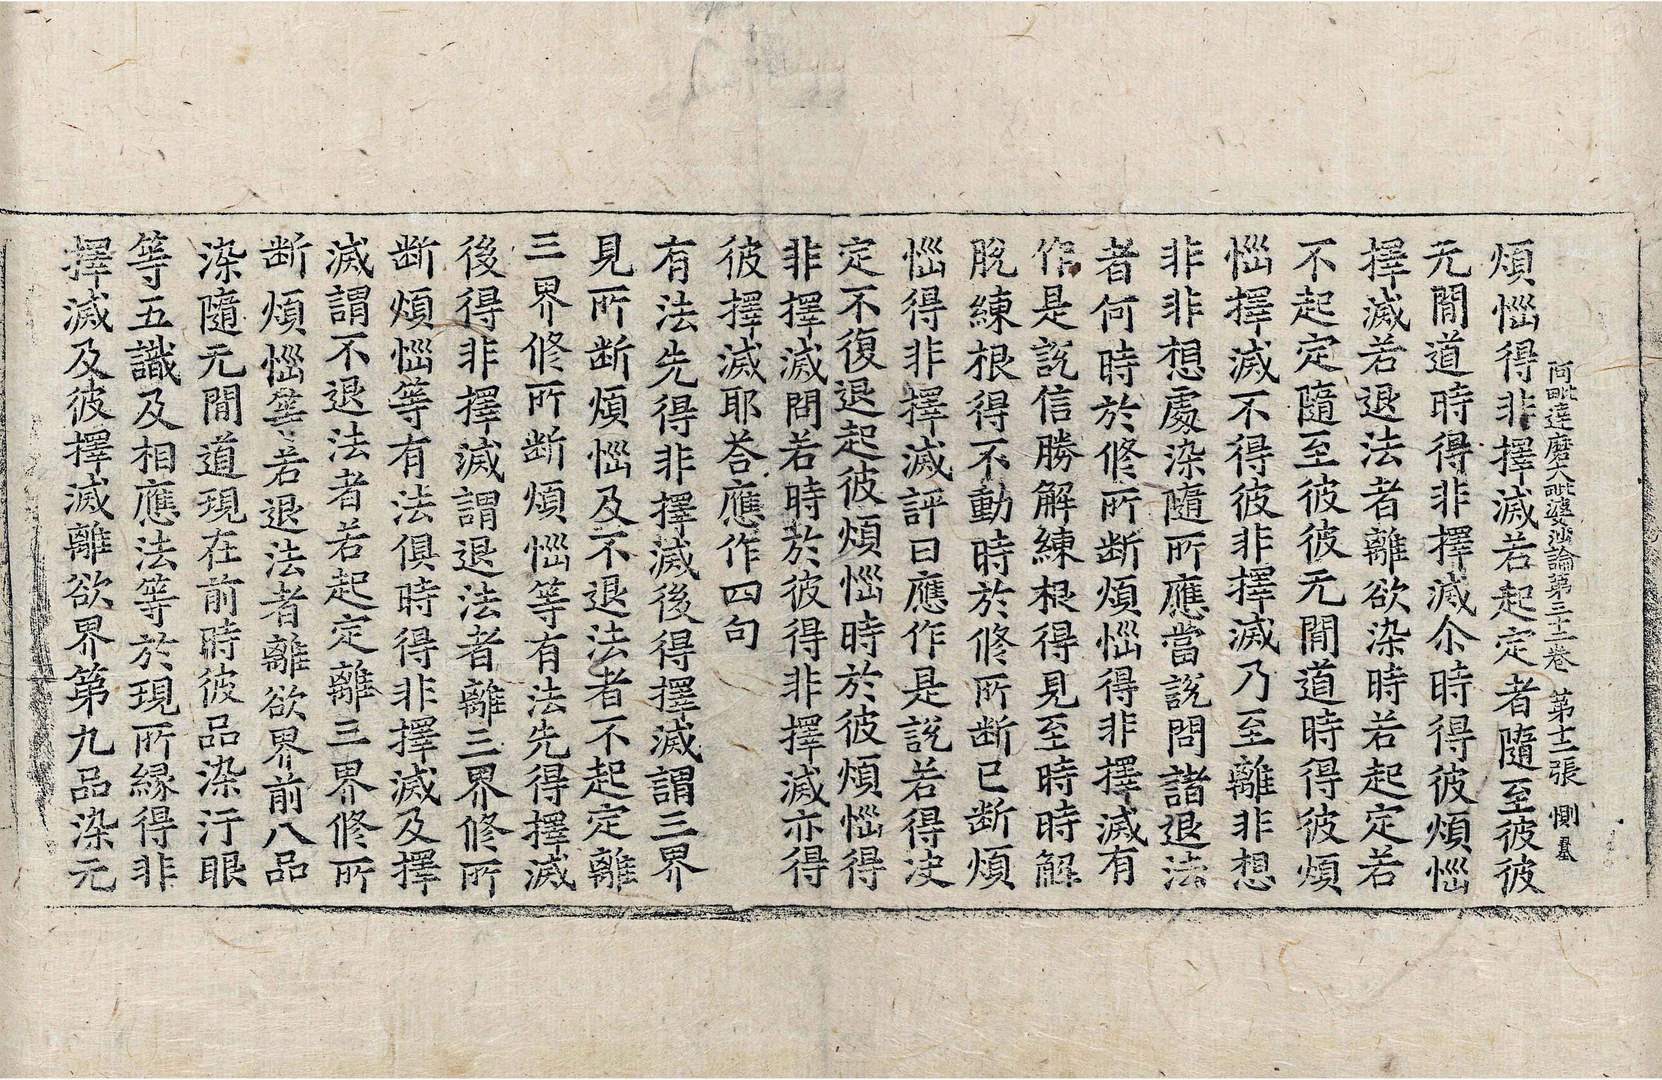 阿毗達磨大毗婆沙論第三十二卷 第十二張 惻
煩惱得非擇滅若起定者隨至彼彼
无閒道時得非擇滅尒時得彼煩惱
擇滅若退法者離欲染時若起定若
不起定隨至彼彼无閒道時得彼煩
惱擇滅不得彼非擇滅乃至離非想
非非想處染隨所應當說問諸退法
者何時於修所斷煩惱得非擇滅有
作是說信勝解練根得見至時時解
脫練根得不動時於修所斷已斷煩
惱得非擇滅評曰應作是說若得決
定不復退起彼煩惱時於彼煩惱得
非擇滅問若時於彼得非擇滅亦得
彼擇滅耶荅應作四句
有法先得非擇滅後得擇滅謂三界
見所断煩惱及不退法者不起定離
三界修所断煩惱等有法先得擇滅
後得非擇滅謂退法者離三界修所
断煩惱等有法俱時得非擇滅及擇
滅謂不退法者若起定離三界修所
断煩惱等若退法者離欲界前八品
染隨无閒道現在前時彼品染汙眼
等五識及相應法等於現所緣得非
擇滅及彼擇滅離欲界第九品染无